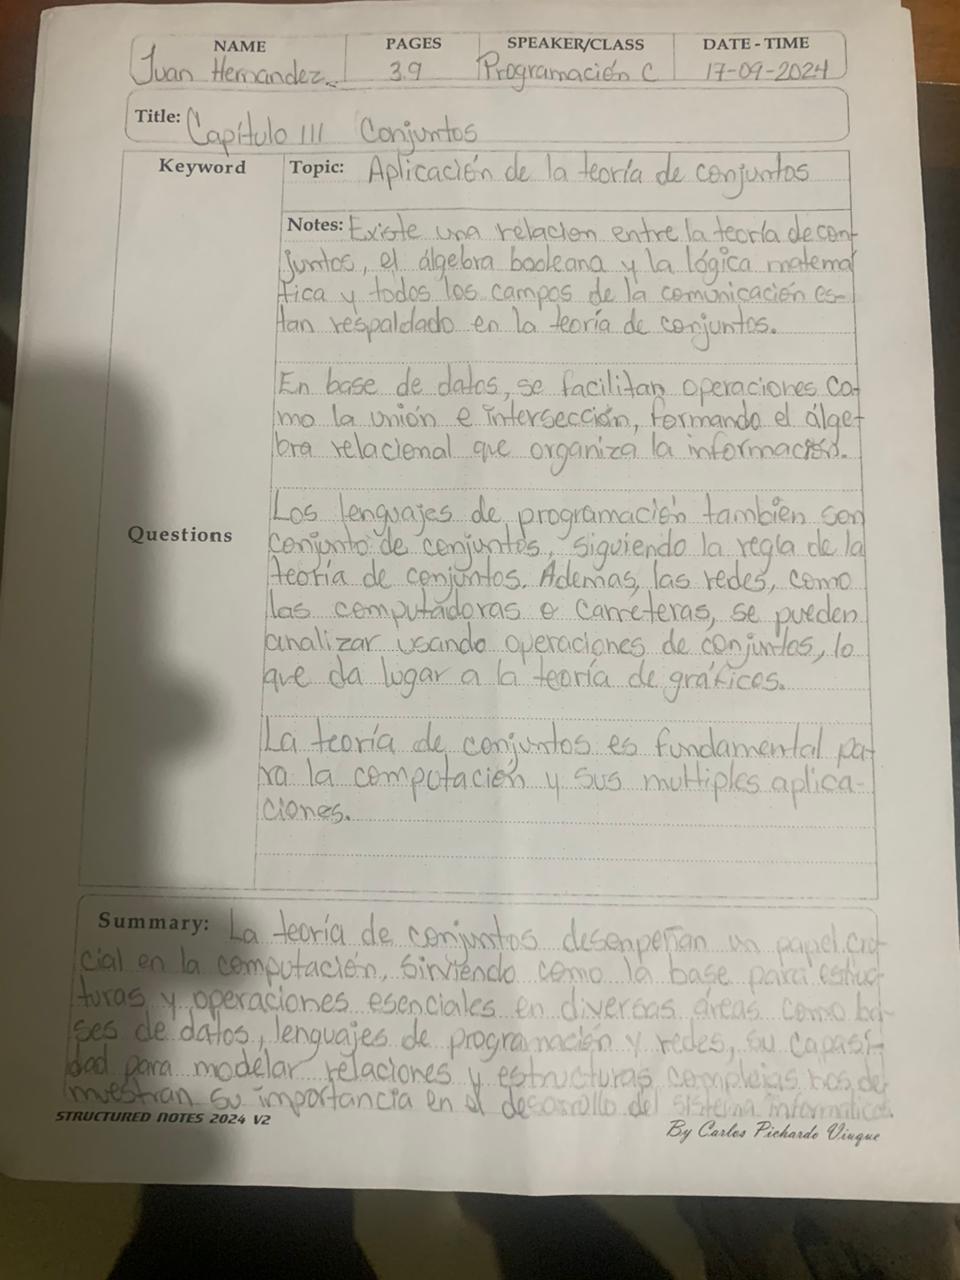 NAME PAGES SPEAKER/CLASS DATE - TIME
Juan Hernandez 3.9 Programación C 17-09-2024
Title: Capítulo III Conjuntos
Keyword
Topic: Aplicación de la teoría de conjuntos
Notes: Existe una relacion entre la teoría de con-
juntos, el álgebra booleana y la lógica matema
tica y todos los campos de la comunicación es-
tan respaldado en la teoría de conjuntos.
En base de datos, se facilitan operaciones co-
mo la unión e intersección, formando el álge-
bra relacional que organiza la información.
Questions
Los lenguajes de programación tambien son
conjunto de conjuntos, siguiendo la regla de la
teoría de conjuntos. Ademas, las redes, como
las computadoras o carreteras, se pueden
analizar usando operaciones de conjuntos, lo
que da lugar a la teoría de gráficos.
La teoría de conjuntos es fundamental pa-
ra la computación y sus multiples aplica-
ciones.
Summary: La teoría de conjuntos desenpeñan un papel cru
cial en la computación, sirviendo como la base para estruc-
turas y operaciones esenciales en diversas áreas como ba-
ses de datos, lenguajes de programación y redes, su capasi-
dad para modelar relaciones y estructuras complejas nos de
muestran su importancia en el desarrollo del sistema informatico.
STRUCTURED NOTES 2024 V2
By Carlos Pichardo Viuque